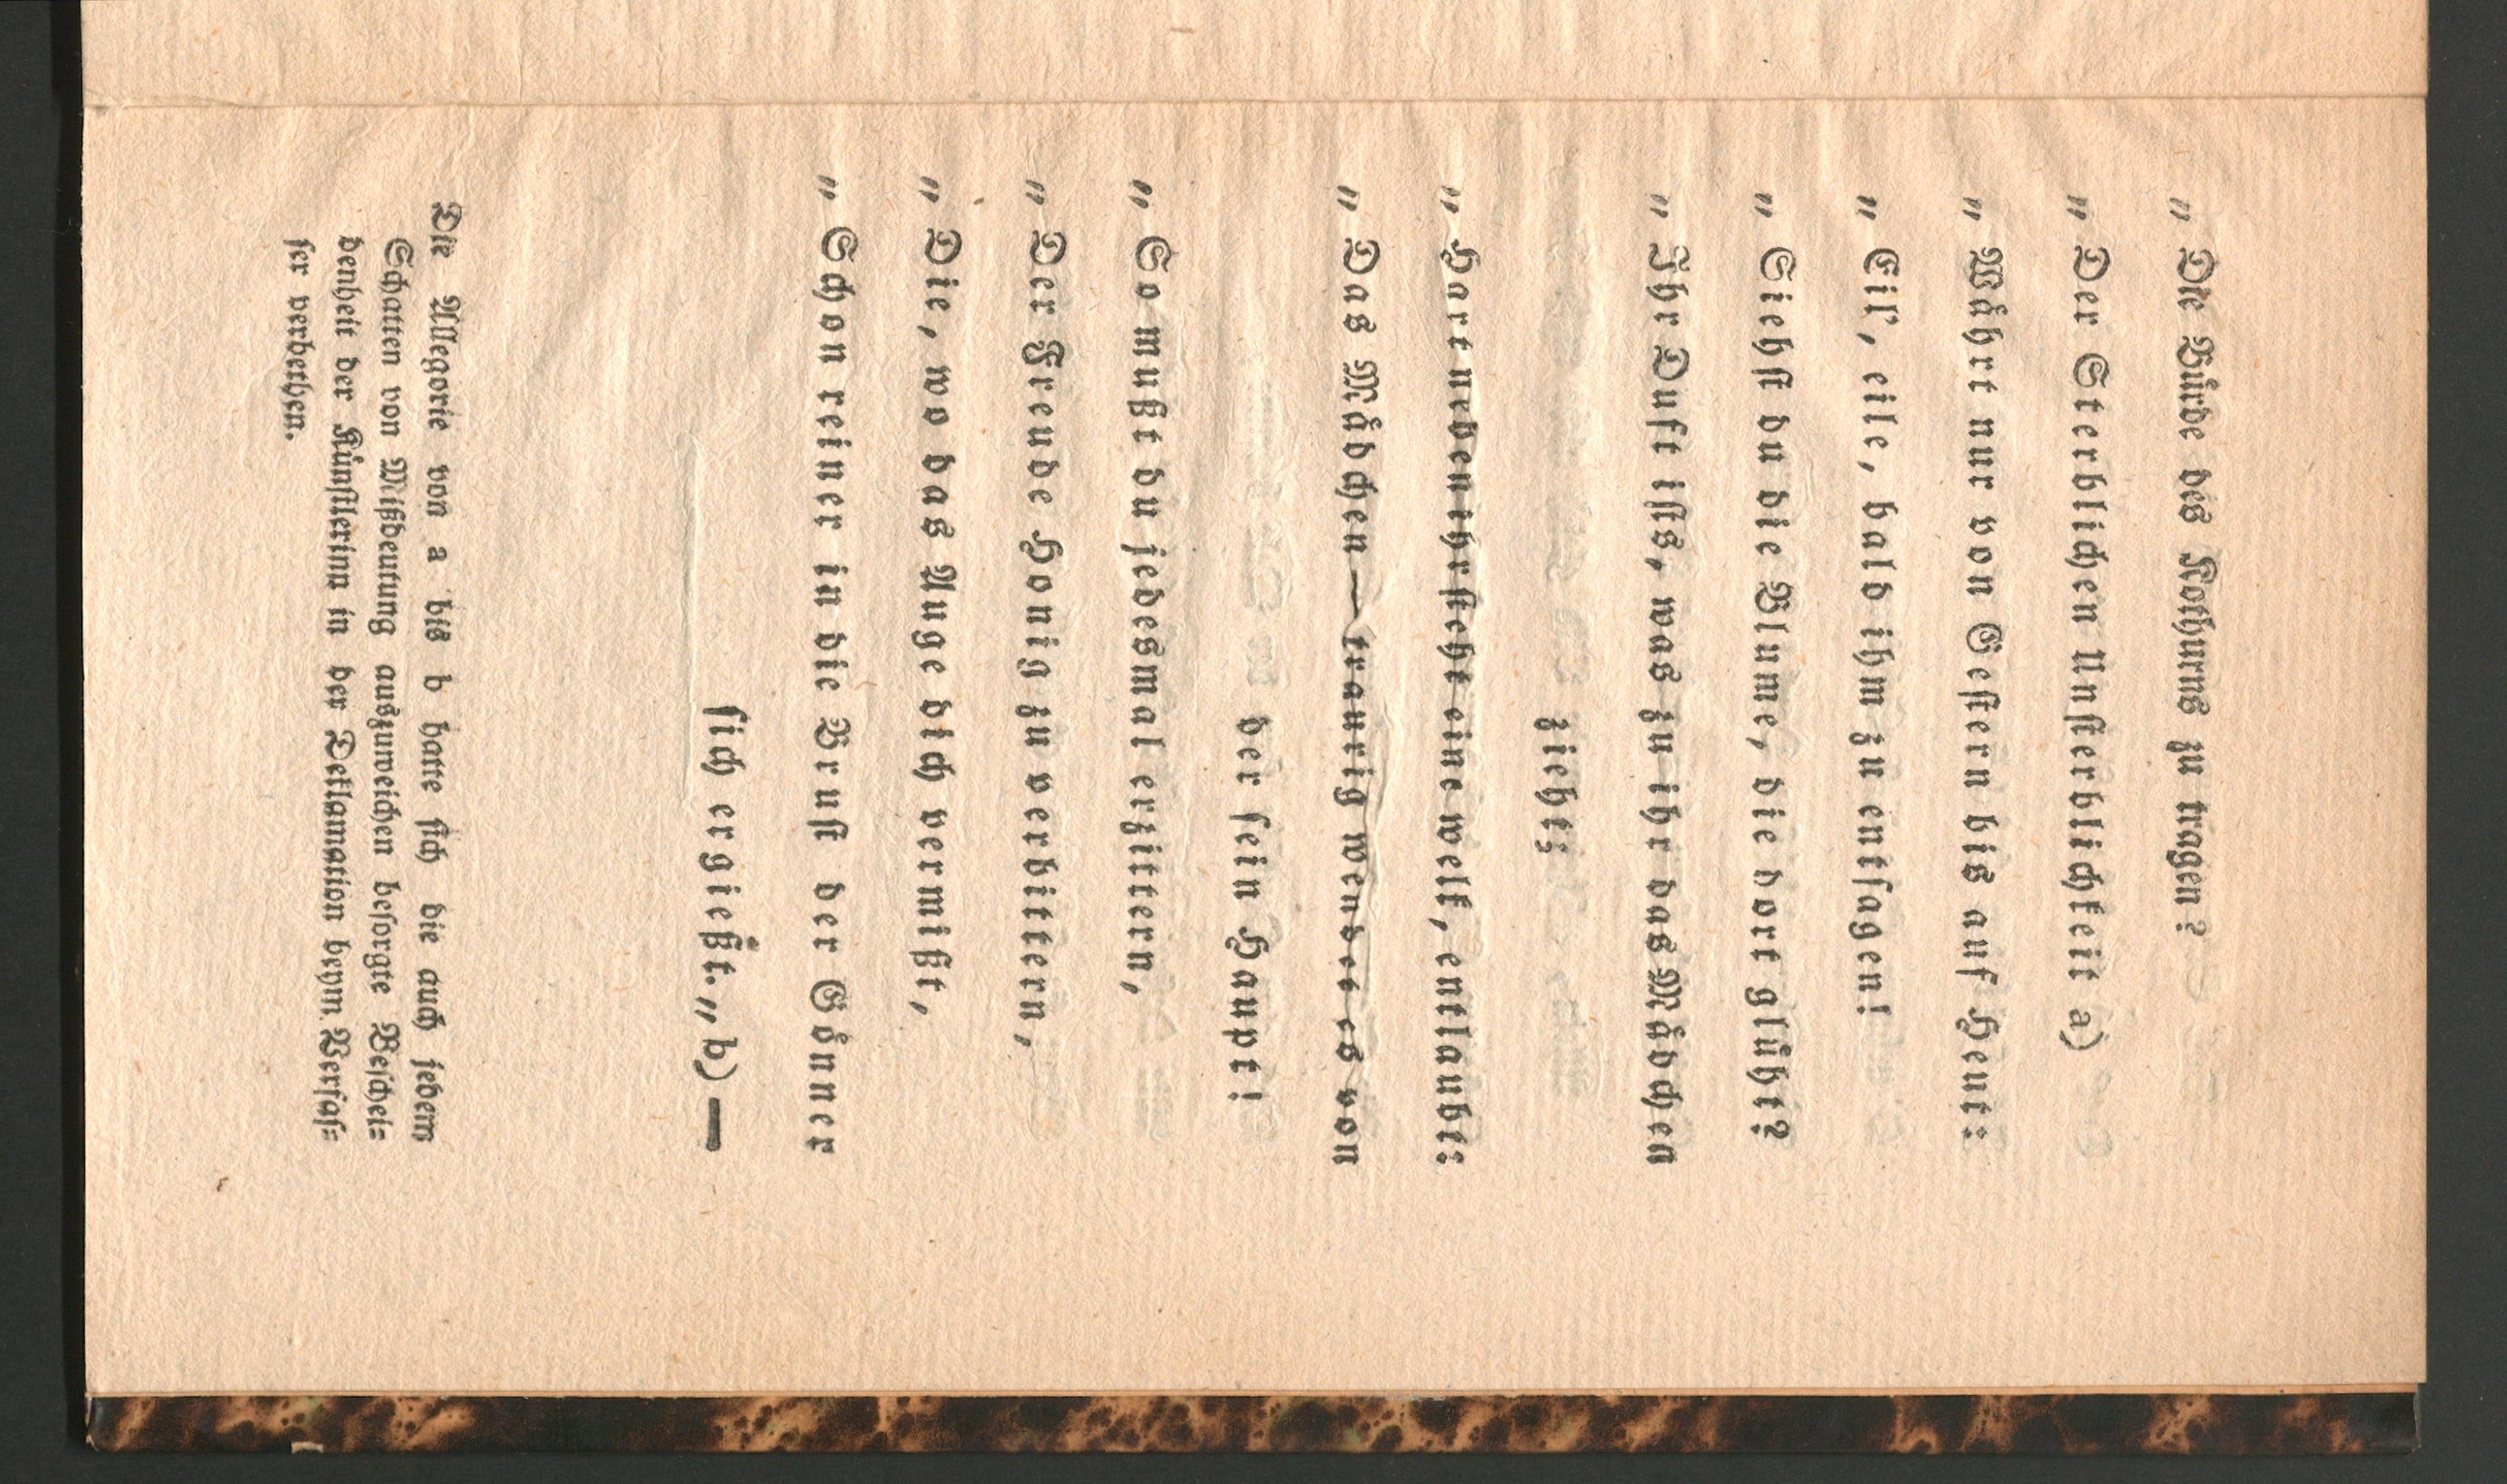 „ Die Bürde des Kothurns zu tragen?
„ Der Sterblichen Unsterblichkeit a)
„ Währt nur von Gestern bis auf Heut:
„ Eil', eile, bald ihm zu entsagen!
„ Siehst du die Blume, die dort glüht?
„ Ihr Duft ists, was zu ihr das Mädchen
zieht;
„ Hart neben ihr steht eine welk, entlaubt:
„ Das Mädchen — traurig wendet es von
der sein Haupt!
„ So mußt du jedesmal erzittern,
„ Der Freude Honig zu verbittern,
„ Die, wo das Auge dich vermißt,
„ Schon reiner in die Brust der Gönner
sich ergießt. „ b) —
Die Allegorie von a bis b hatte sich die auch jedem
Schatten von Mißdeutung auszuweichen besorgte Beschei=
denheit der Künstlerinn in der Deklamation beym Verfas=
ser verbethen.